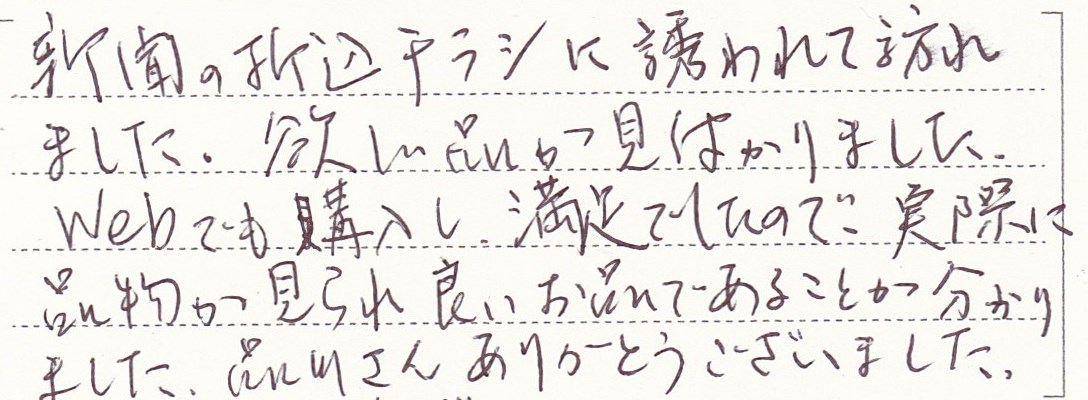 新聞の折込チラシに誘われて訪れ
ました。欲しい品が見ばかりました。
Webでも購入し、満足でしたので実際に
品物が見られ良いお品であることが分かり
ました、品川さんありがとうございました。